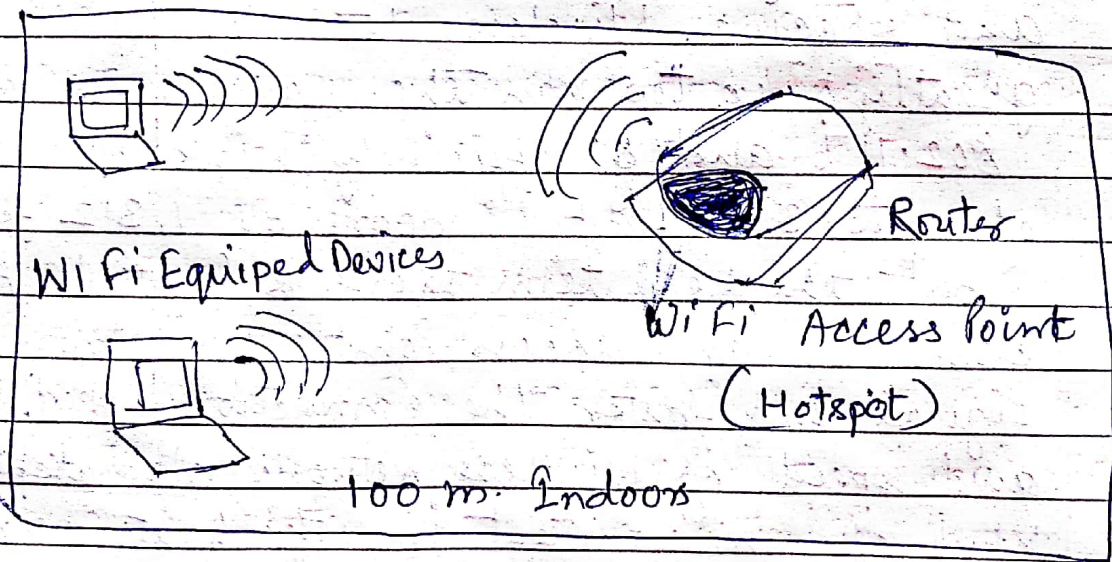 Router
Wi Fi Equiped Devices
Wi Fi Access Point
(Hotspot)
100 m. Indoors